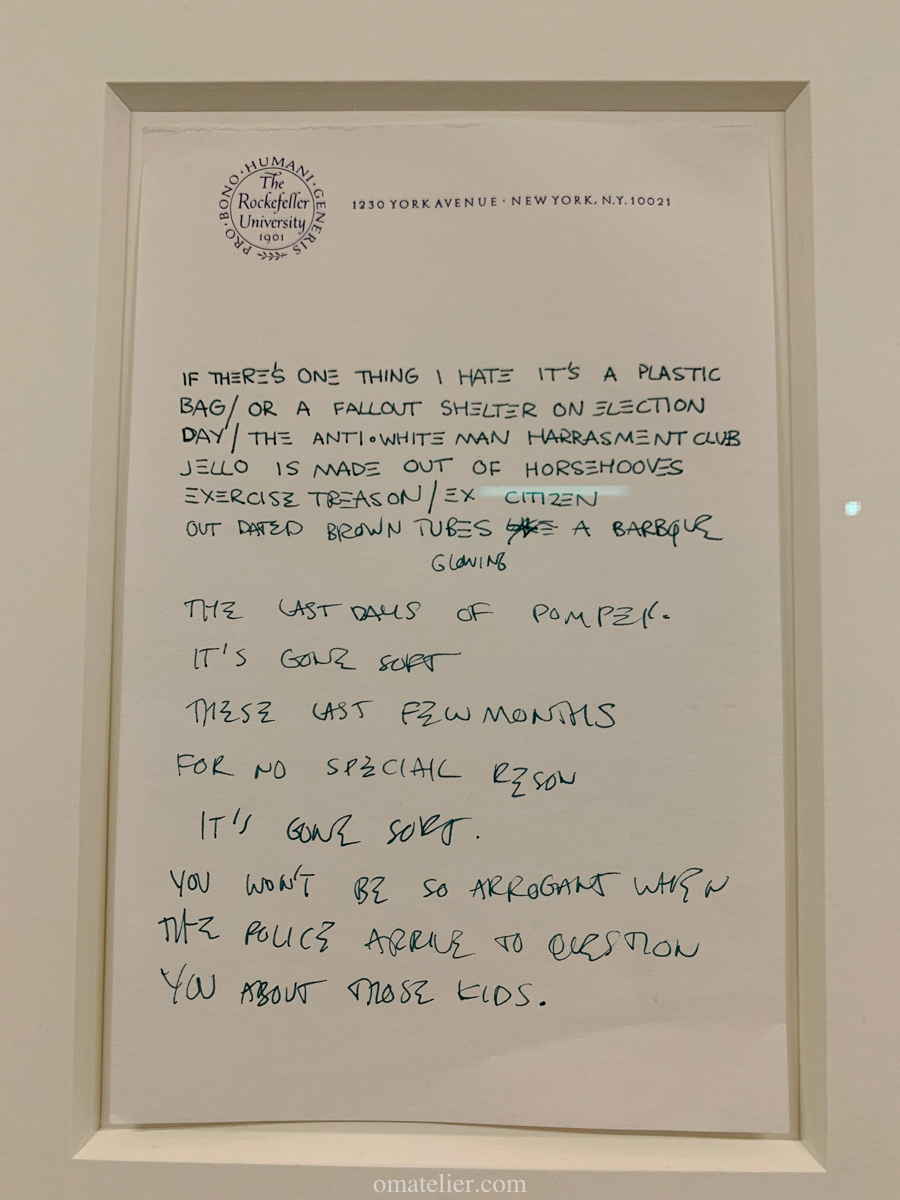 PRO·BONO·HUMANI·GENERIS
The
Rockefeller
University
1901
1230 YORK AVENUE · NEW YORK, N.Y. 10021
IF THERE'S ONE THING I HATE IT'S A PLASTIC
BAG/ OR A FALLOUT SHELTER ON ELECTION
DAY/ THE ANTI·WHITE MAN HARRASMENT CLUB
JELLO IS MADE OUT OF HORSEHOOVES
EXERCISE TREASON/EX CITIZEN
OUT DATED BROWN TUBES A BARBQUE
GLOWING
THE LAST DAYS OF POMPEI.
IT'S GONE SORT
THESE LAST FEW MONTHS
FOR NO SPECIAIL RESON
IT'S GONE SORT.
YOU WON'T BE SO ARROGANT WHEN
THE POLICE ARRIVE TO QUESTION
YOU ABOUT THOSE KIDS.
omatelier.com